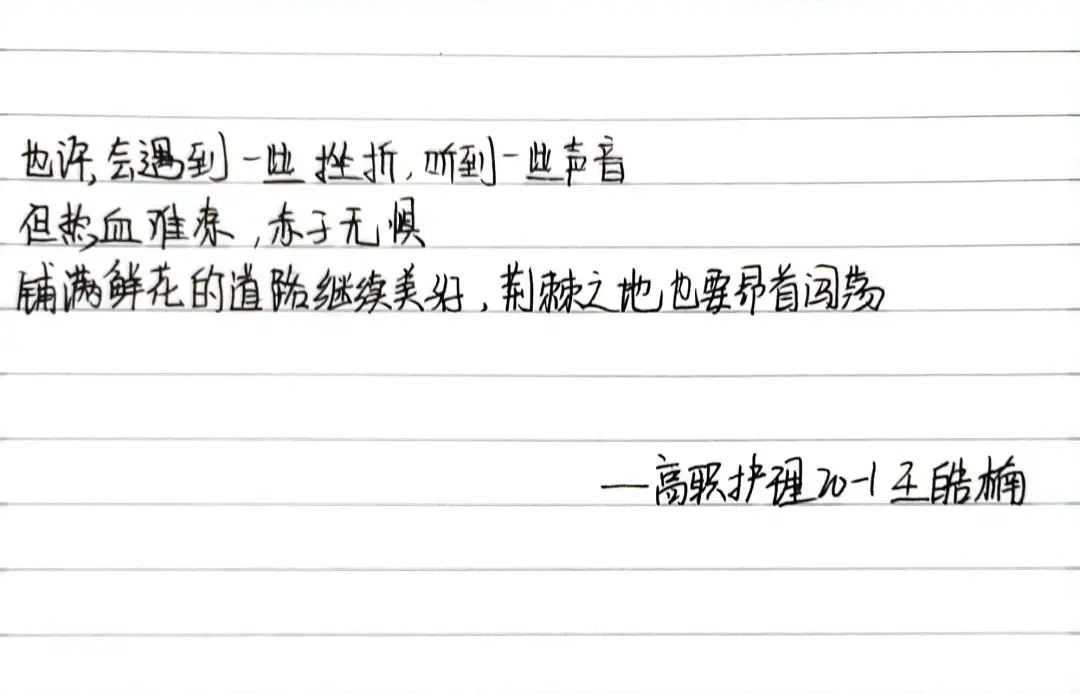 也许,会遇到一些挫折,听到一些声音
但热血难凉,赤子无惧
铺满鲜花的道路继续美好,荆棘之地也要昂首闯荡
—高职护理20-1 王皓楠